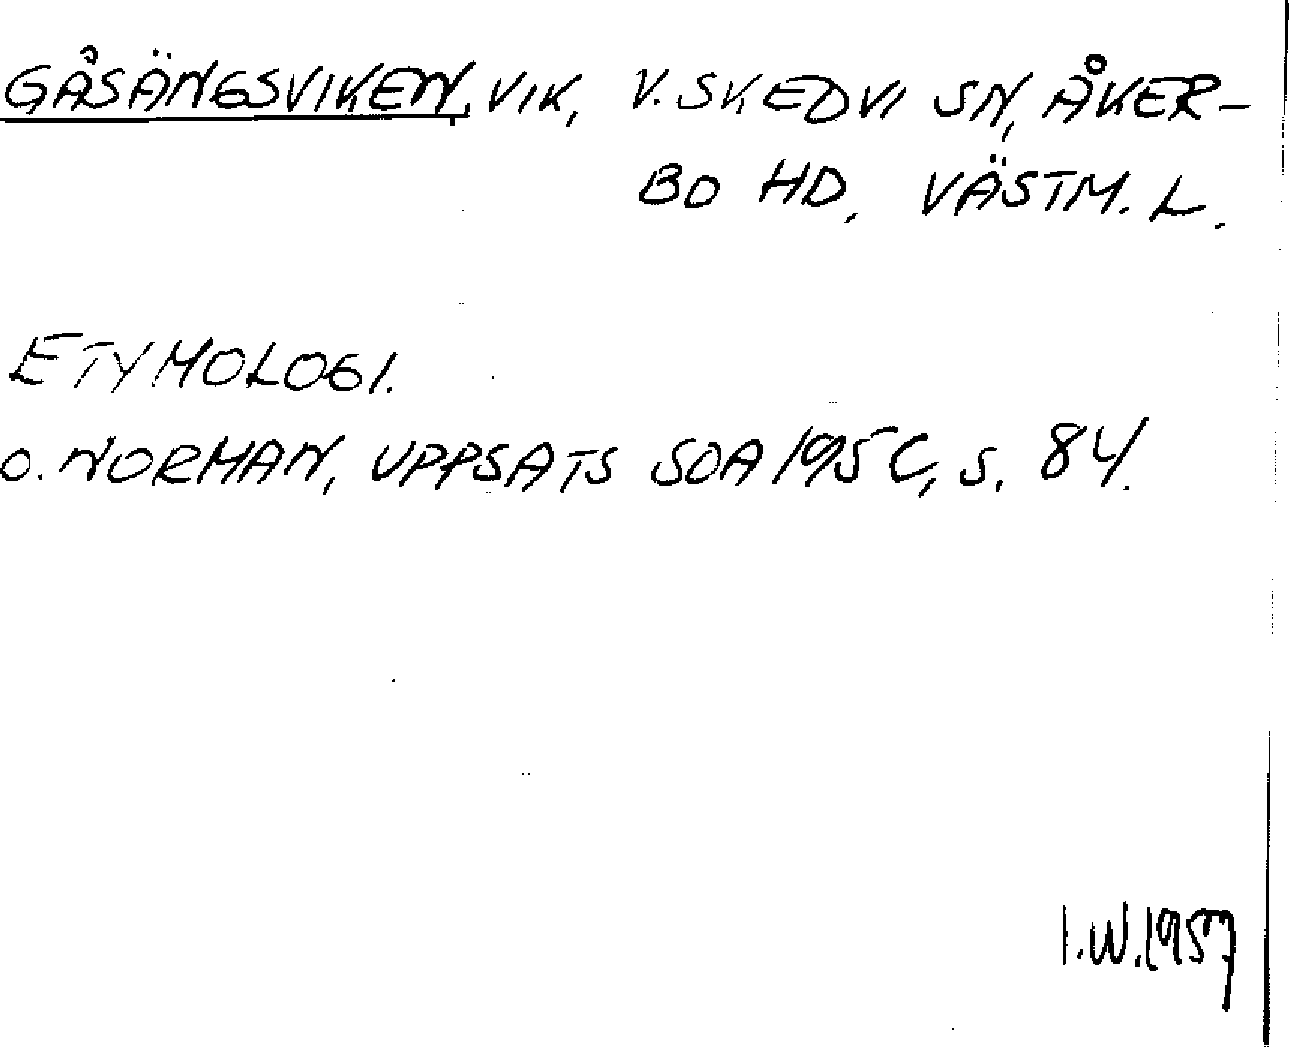 GÅSÄNGSVIKEN, VIK, V. SKEDVI SN, ÅKER-
BO HD, VÄSTM. L.
ETYMOLOGI.
O. NORMAN, UPPSATS SOA 195C, S. 84.
I.W. 1957